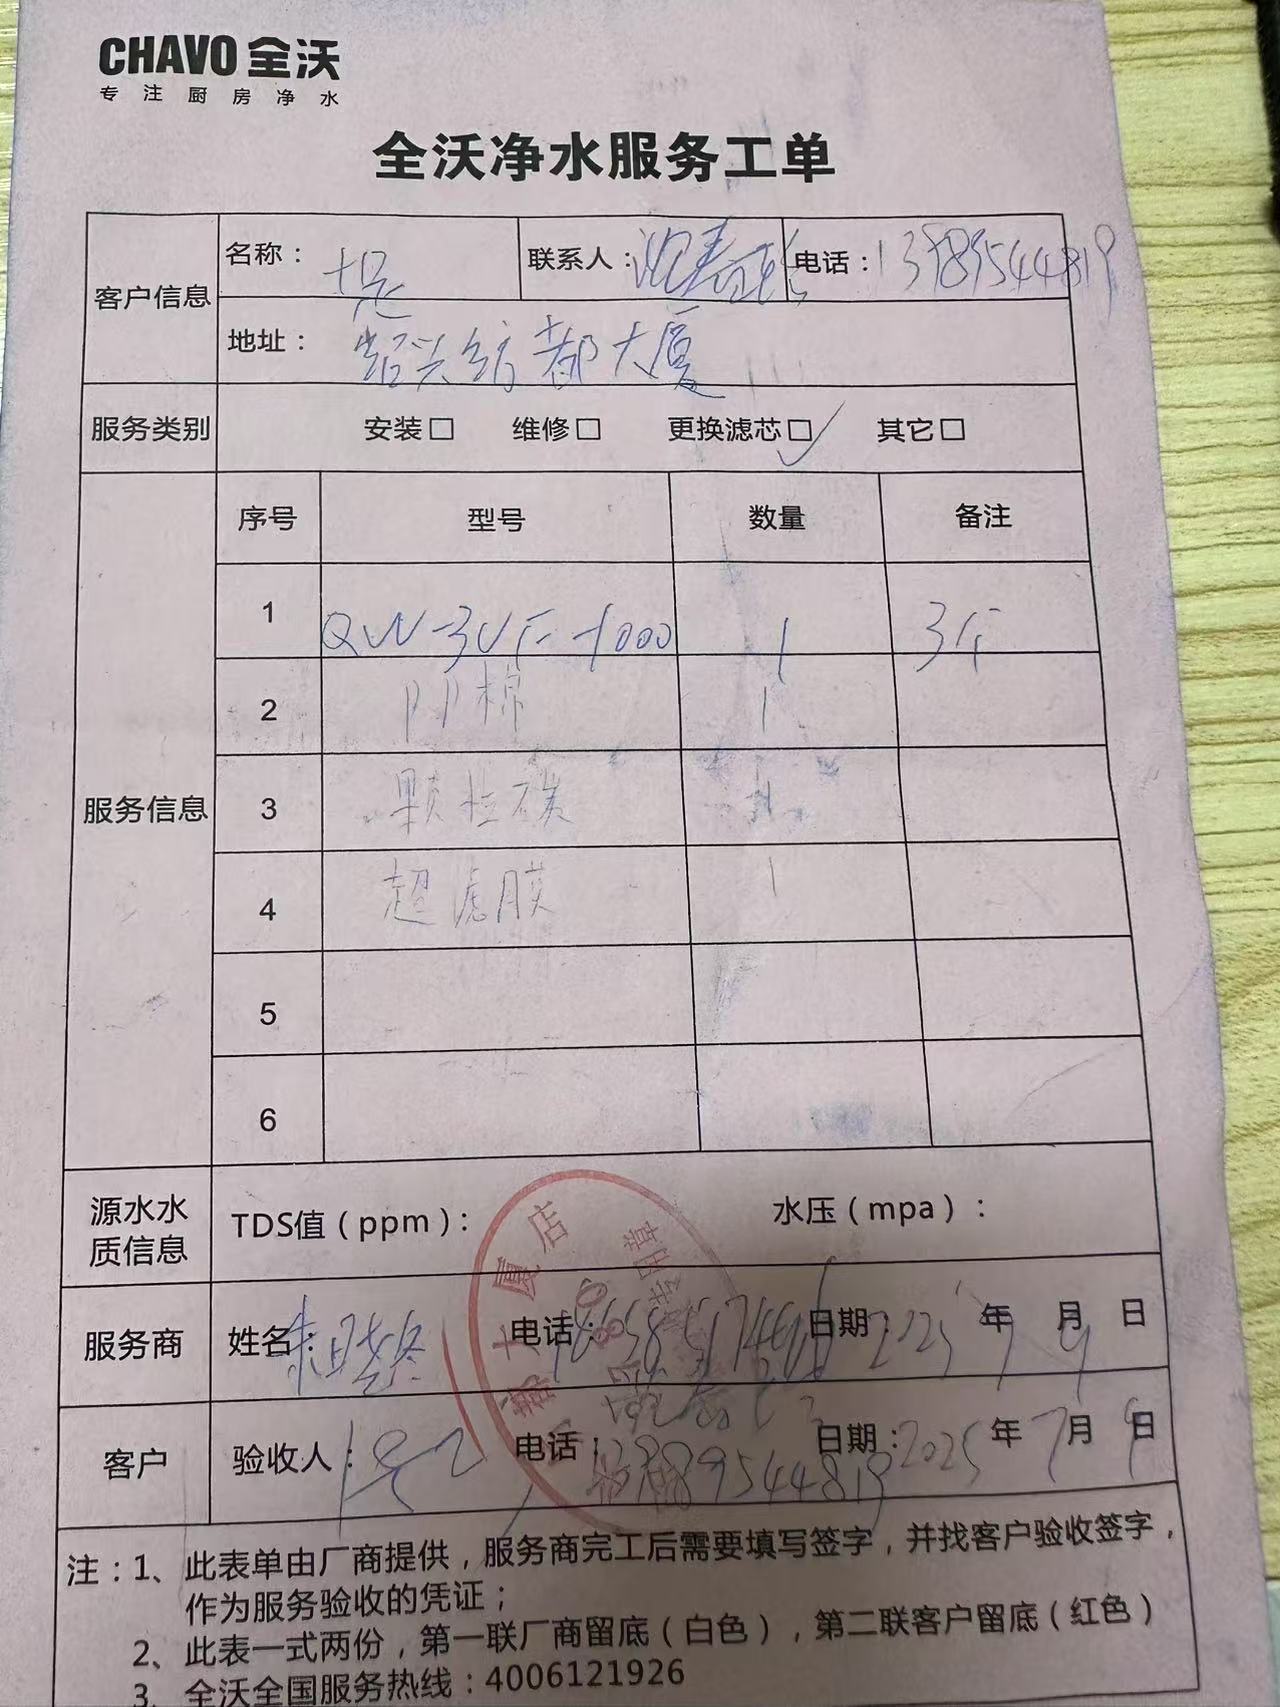 CHAVO 全沃
专注厨房净水
全沃净水服务工单
客户信息 名称： 联系人： 电话：13989544819
地址：绍兴纺都大厦
服务类别 安装□ 维修□ 更换滤芯□✓ 其它□
服务信息 序号 型号 数量 备注
1 QW-3UF-1000 1 3斤
2 PP棉 1
3 颗粒碳 1
4 超滤膜 1
5
6
源水水质信息 TDS值（ppm）： 水压（mpa）：
服务商 姓名： 电话： 日期：2025年7月9日
客户 验收人： 电话：13989544819 日期：2025年7月9日
注：1、此表单由厂商提供，服务商完工后需要填写签字，并找客户验收签字，
作为服务验收的凭证；
2、此表一式两份，第一联厂商留底（白色），第二联客户留底（红色）
3、全沃全国服务热线：4006121926